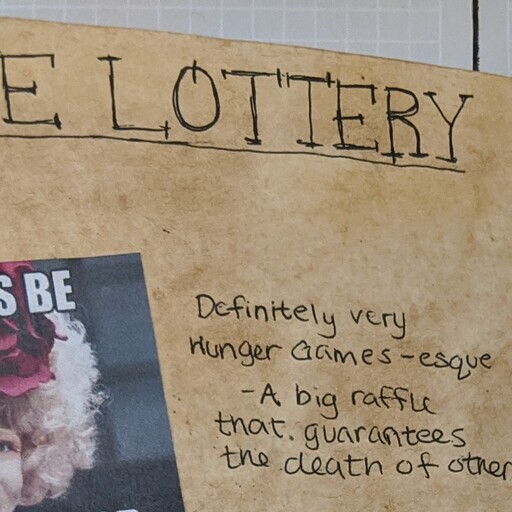 E LOTTERY
S BE
Definitely very
Hunger Games-esque
-A big raffle
that. guarantees
the death of other